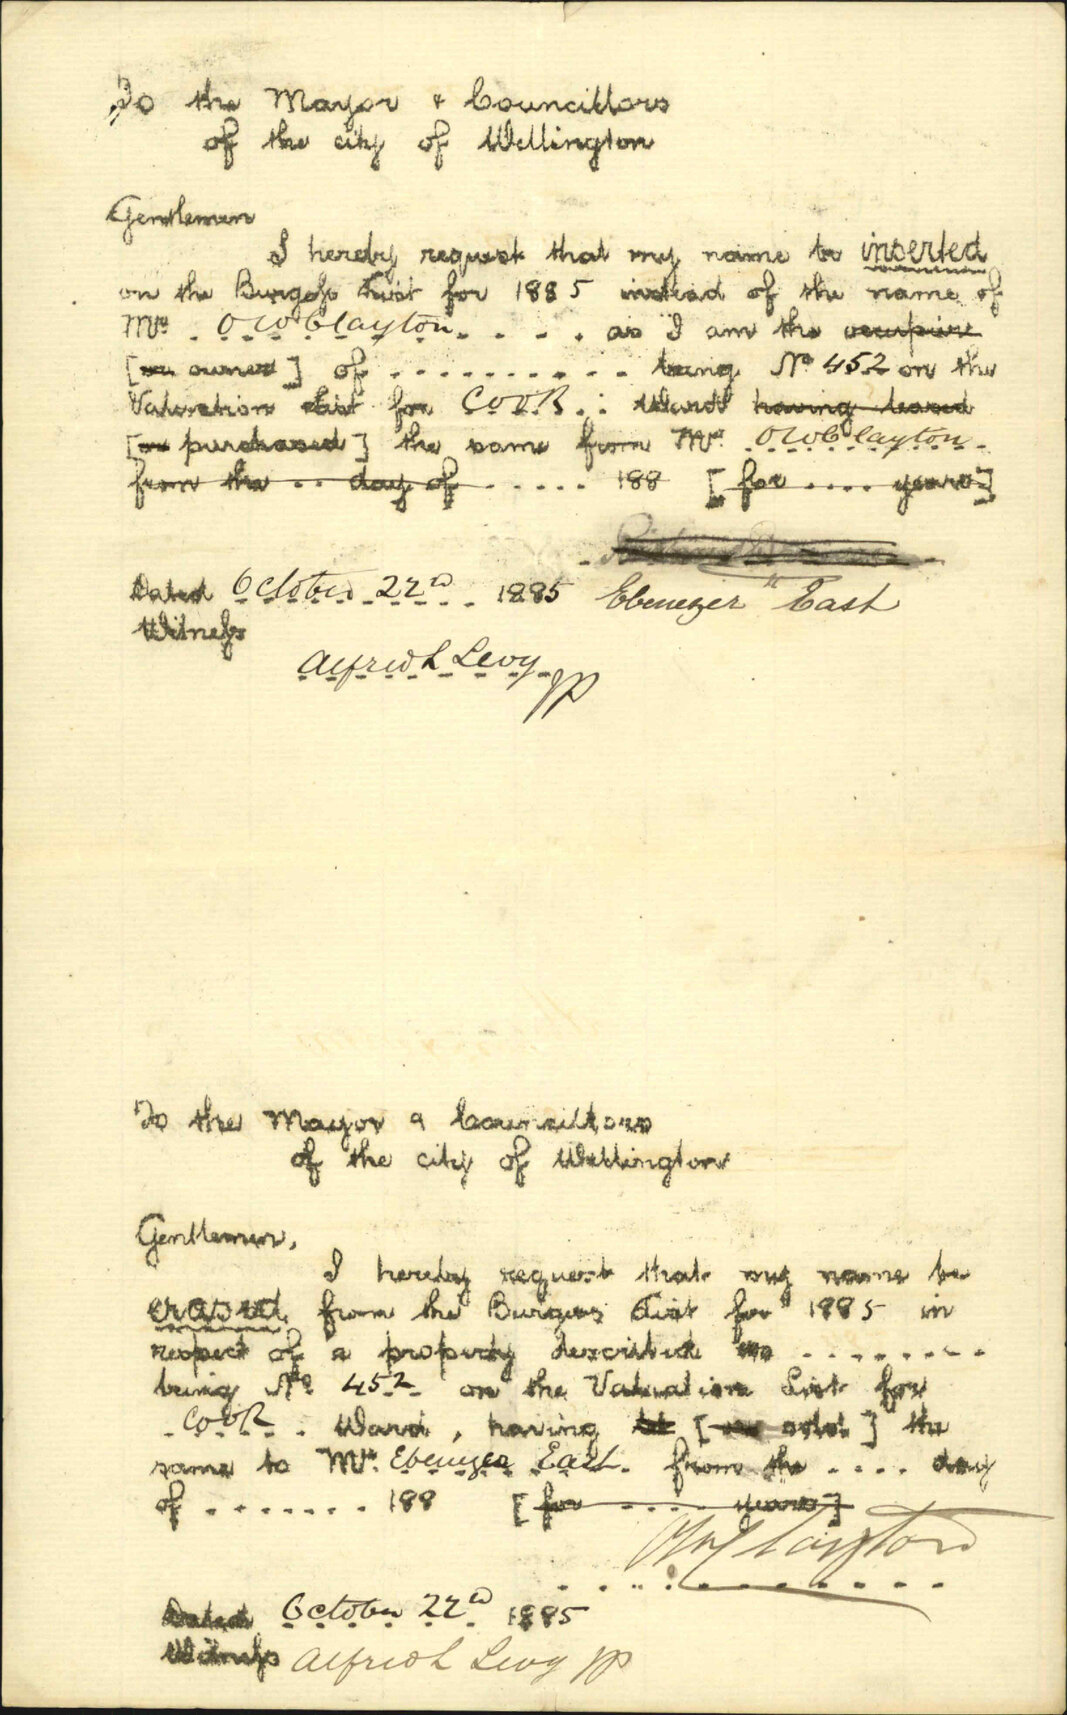 To the Mayor & Councillors
of the city of Wellington
Gentlemen
I hereby request that my name be inserted
on the Burgess List for 1885 instead of the name of
Mr. O W Clayton as I am the occupier
[or owner] of .......... being No. 452 on the
Valuation List for COOK Ward having leased
[or purchased] the same from Mr. O W Clayton
from the .. day of ..... 188 [for .... years]
Dated October 22nd 1885 Ebenezer East
Witness
Alfred L Levy JP
To the Mayor & Councillors
of the city of Wellington
Gentlemen,
I hereby request that my name be
erased from the Burgess List for 1885 in
respect of a property described as ........
being No. 452 on the Valuation List for
COOK Ward, having let [or sold] the
same to Mr. Ebenezer East from the .... day
of ....... 188 [for .... years]
O W Clayton
Dated October 22nd 1885
Witness Alfred L Levy JP